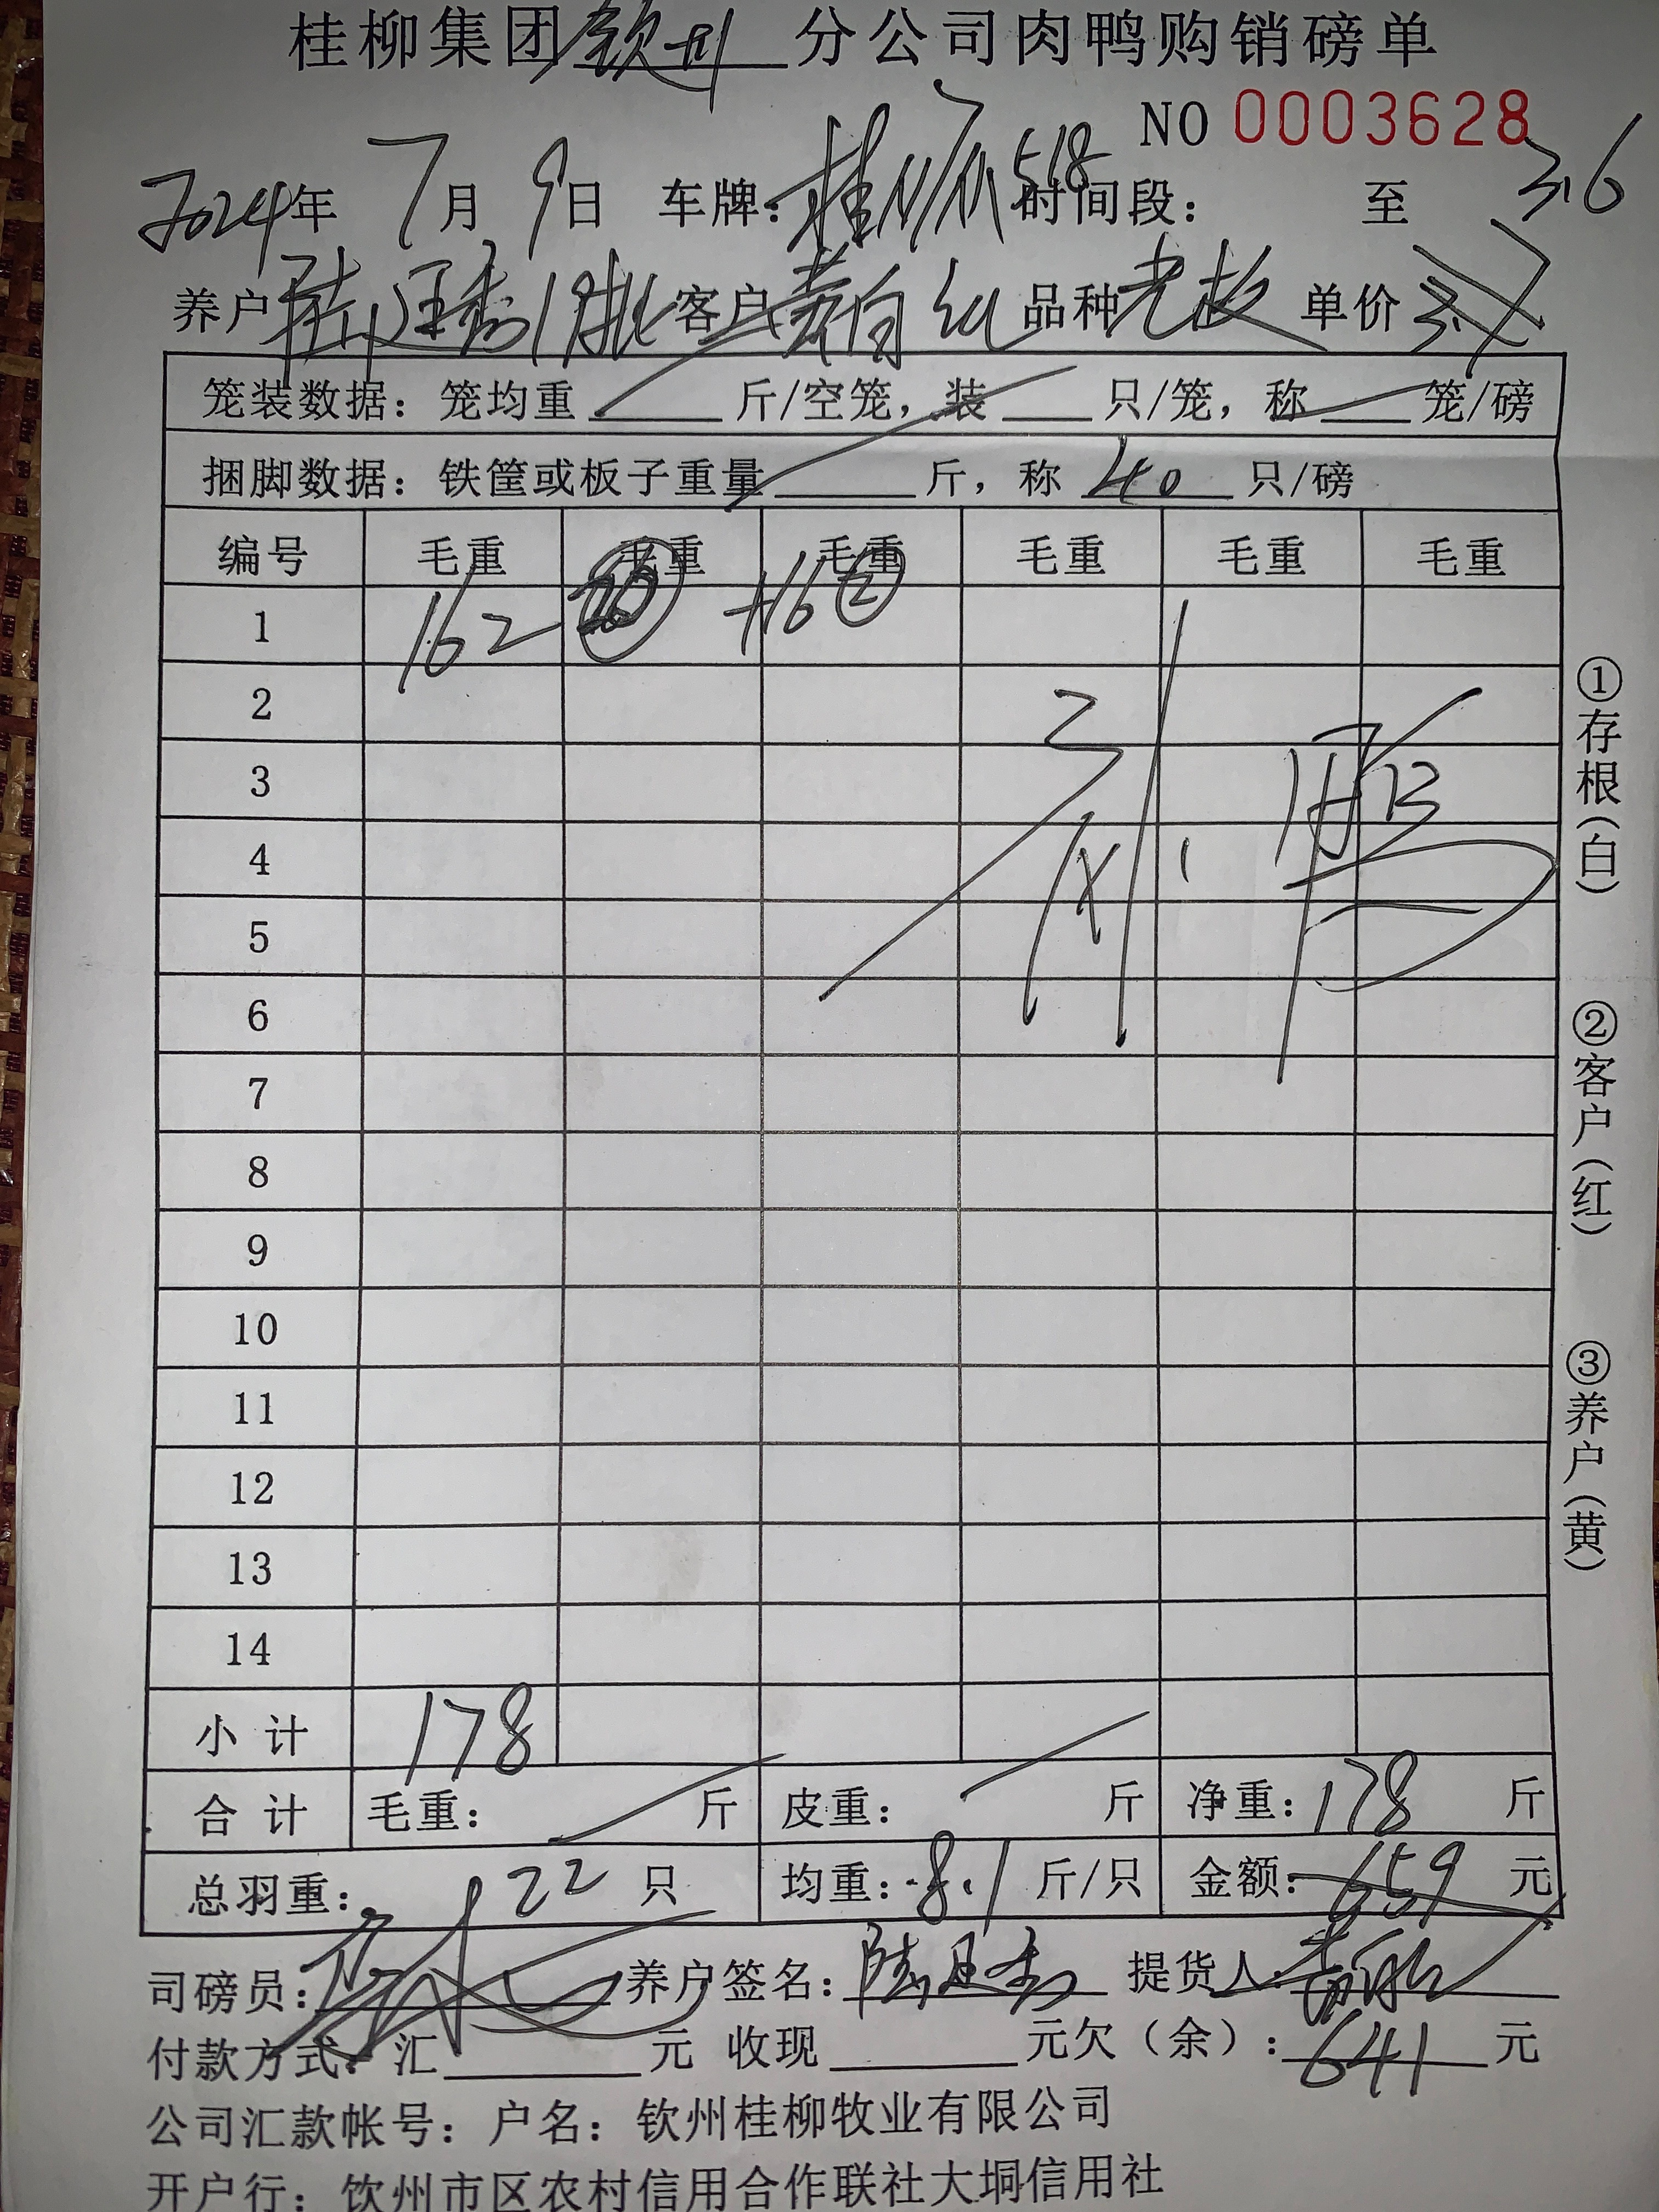 桂柳集团钦州分公司肉鸭购销磅单
NO 0003628
2024年 7月 9日 车牌: 518 时间段: 至 3.6
养户 19批 客户 黄 品种 老 单价
笼装数据: 笼均重 斤/空笼, 装 只/笼, 称 笼/磅
捆脚数据: 铁筐或板子重量 斤, 称 40 只/磅
编号 毛重 毛重 毛重 毛重 毛重 毛重
1 162 +16 ②
2
3
4
5
6
7
8
9
10
11
12
13
14
小计 178
合计 毛重: 斤 皮重: 斤 净重: 178 斤
总羽重: 22 只 均重: 8.1 斤/只 金额: 659 元
司磅员: 养户签名: 提货人:
付款方式: 汇 元 收现 元欠(余): 641 元
公司汇款帐号: 户名: 钦州桂柳牧业有限公司
开户行: 钦州市区农村信用合作联社大垌信用社
①存根(白)
②客户(红)
③养户(黄)